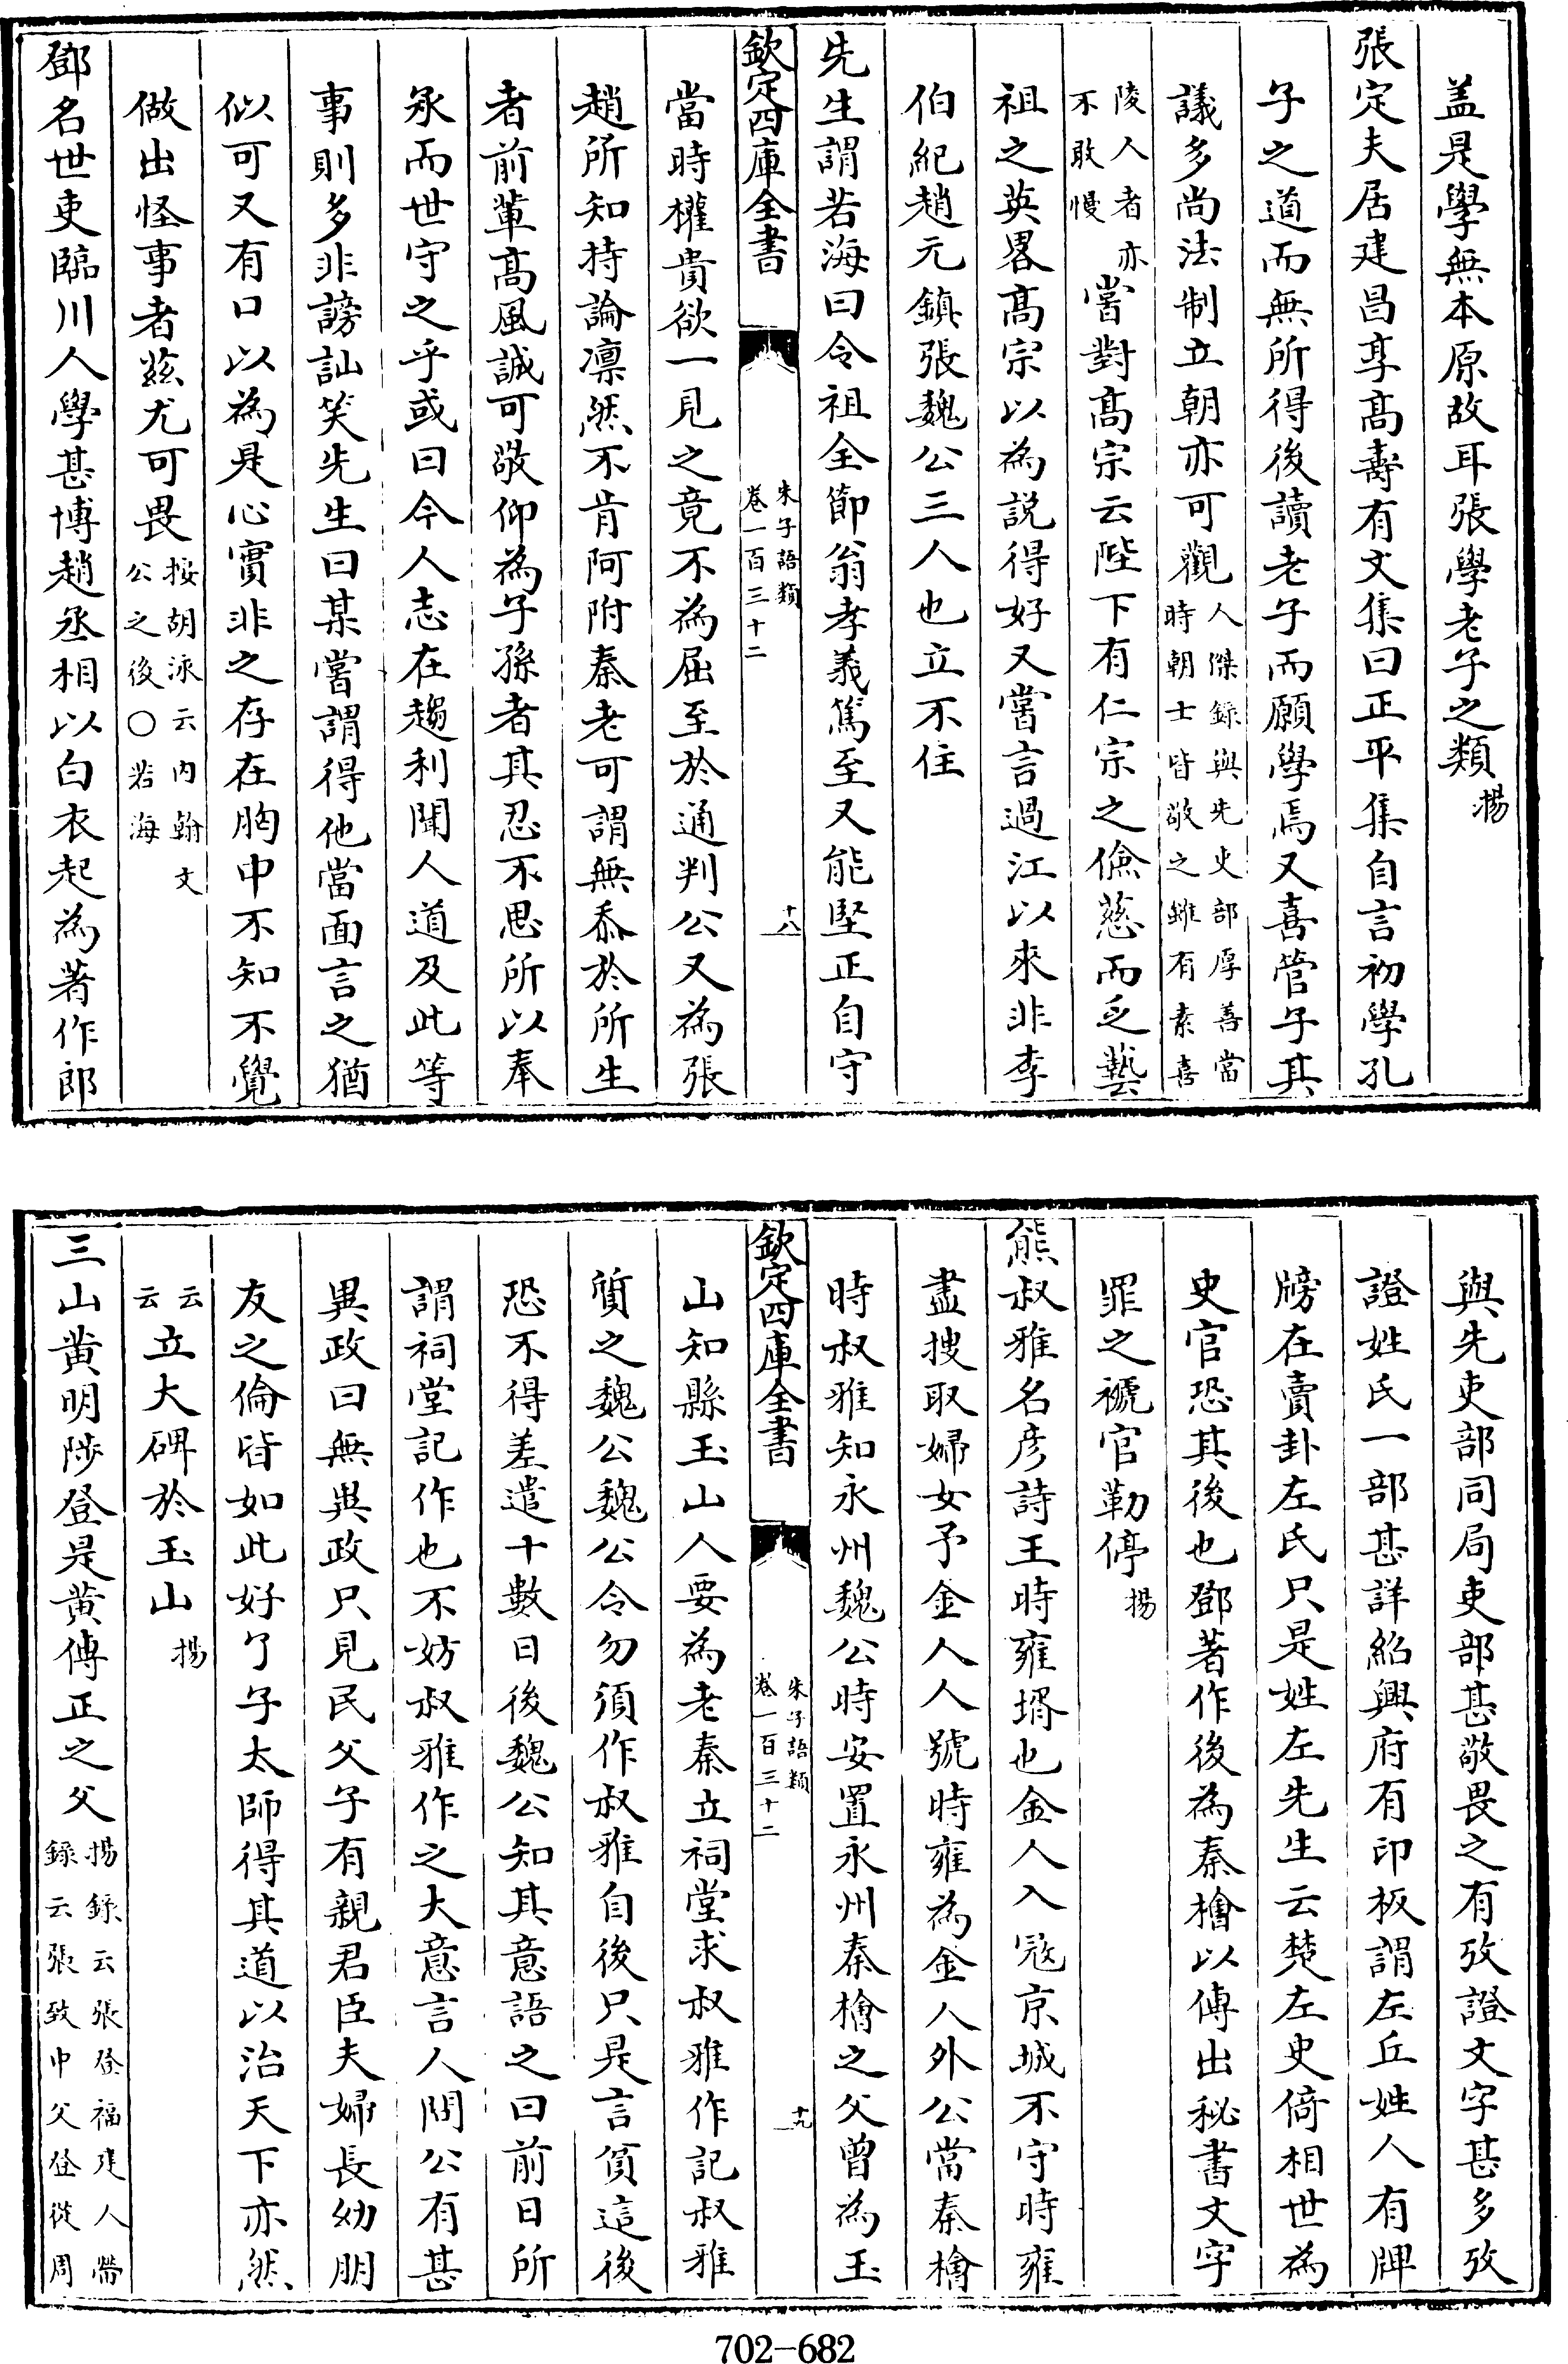 盖是學無本原故耳張學老子之類揚
張定夫居建昌享髙壽有文集曰正平集自言初學孔
子之道而無所得後讀老子而願學焉又喜管子其
議多尚法制立朝亦可觀人傑録與先吏部厚善當
時朝士皆敬之雖有素喜
陵人者亦
不敢慢嘗對髙宗云陛下有仁宗之儉慈而乏藝
祖之英畧髙宗以為説得好又嘗言過江以來非李
伯紀趙元鎮張魏公三人也立不住
先生謂若海曰令祖全節翁孝義篤至又能堅正自守
欽定四庫全書
朱子語類
卷一百三十二
十八
當時權貴欲一見之竟不為屈至於通判公又為張
趙所知持論凛然不肯阿附秦老可謂無忝於所生
者前輩髙風誠可敬仰為子孫者其忍不思所以奉
承而世守之乎或曰今人志在趨利聞人道及此等
事則多非謗訕笑先生曰某嘗謂得他當面言之猶
似可又有口以為是心實非之存在胸中不知不覺
做出怪事者兹尤可畏按胡泳云内翰文
公之後○若海
鄧名世吏臨川人學甚博趙丞相以白衣起為著作郎
與先吏部同局吏部甚敬畏之有攷證文字甚多攷
證姓氏一部甚詳紹興府有印板謂左丘姓人有牌
牓在賣卦左氏只是姓左先生云楚左史倚相世為
史官恐其後也鄧著作後為秦檜以傳出秘書文字
罪之褫官勒停揚
熊叔雅名彦詩王時雍壻也金人入冦京城不守時雍
盡搜取婦女予金人人號時雍為金人外公當秦檜
時叔雅知永州魏公時安置永州秦檜之父曾為玉
欽定四庫全書
朱子語類
卷一百三十二
十九
山知縣玉山人要為老秦立祠堂求叔雅作記叔雅
質之魏公魏公令勿須作叔雅自後只是言貧這後
恐不得差遣十數日後魏公知其意語之曰前日所
謂祠堂記作也不妨叔雅作之大意言人問公有甚
異政曰無異政只見民父子有親君臣夫婦長幼朋
友之倫皆如此好了子太師得其道以治天下亦然
云云
立大碑於玉山揚
三山黄明陟登是黄傅正之父揚録云張登福建人㽞
録云張致中父登從周